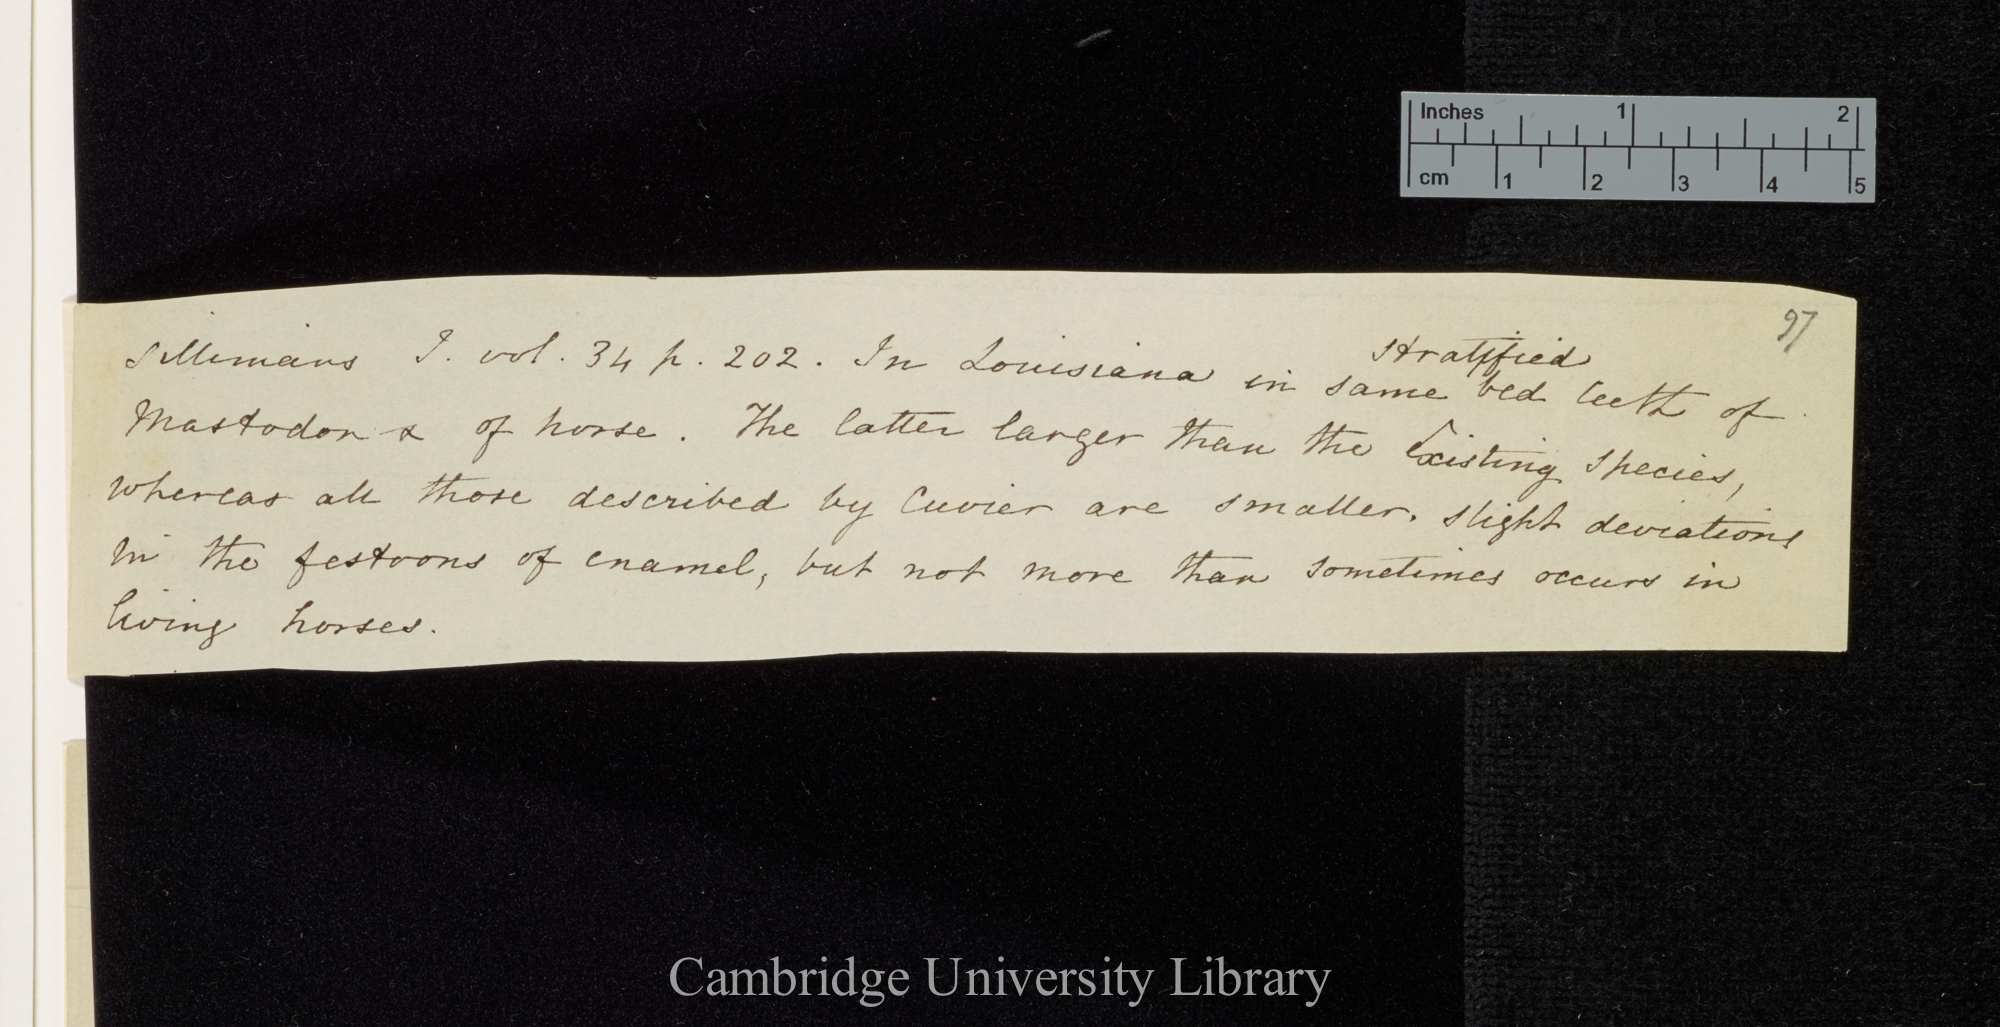 Inches 1 2
cm 1 2 3 4 5
97
Sillimans J. vol. 34 p. 202. In Louisiana in same stratified bed teeth of
Mastodon & of horse. The latter larger than the Existing species,
whereas all those described by Cuvier are smaller. slight deviations
in the festoons of enamel, but not more than sometimes occurs in
living horses.
Cambridge University Library